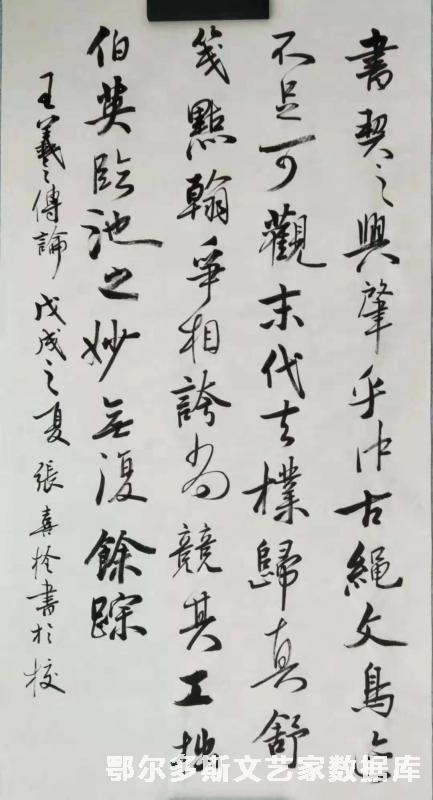 書契之興肇乎中古繩文鳥迹
不足可觀末代去樸歸真舒
箋點翰爭相誇尚競其工拙
伯英臨池之妙無復餘踪
王羲之傳論 戊戌之夏 張喜栓書於校
鄂尔多斯文艺家数据库